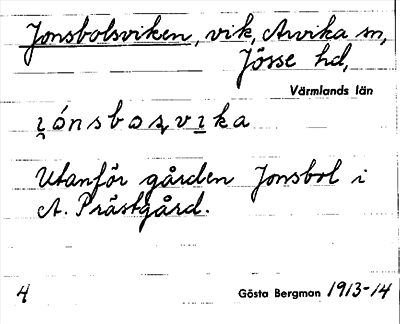 Jonsbolsviken, vik, Arvika sn,
Jösse hd,
Värmlands län
i̯ónsbo̱ʂvi̱ka
Utanför gården Jonsbol i
A. Prästgård.
4 Gösta Bergman 1913-14